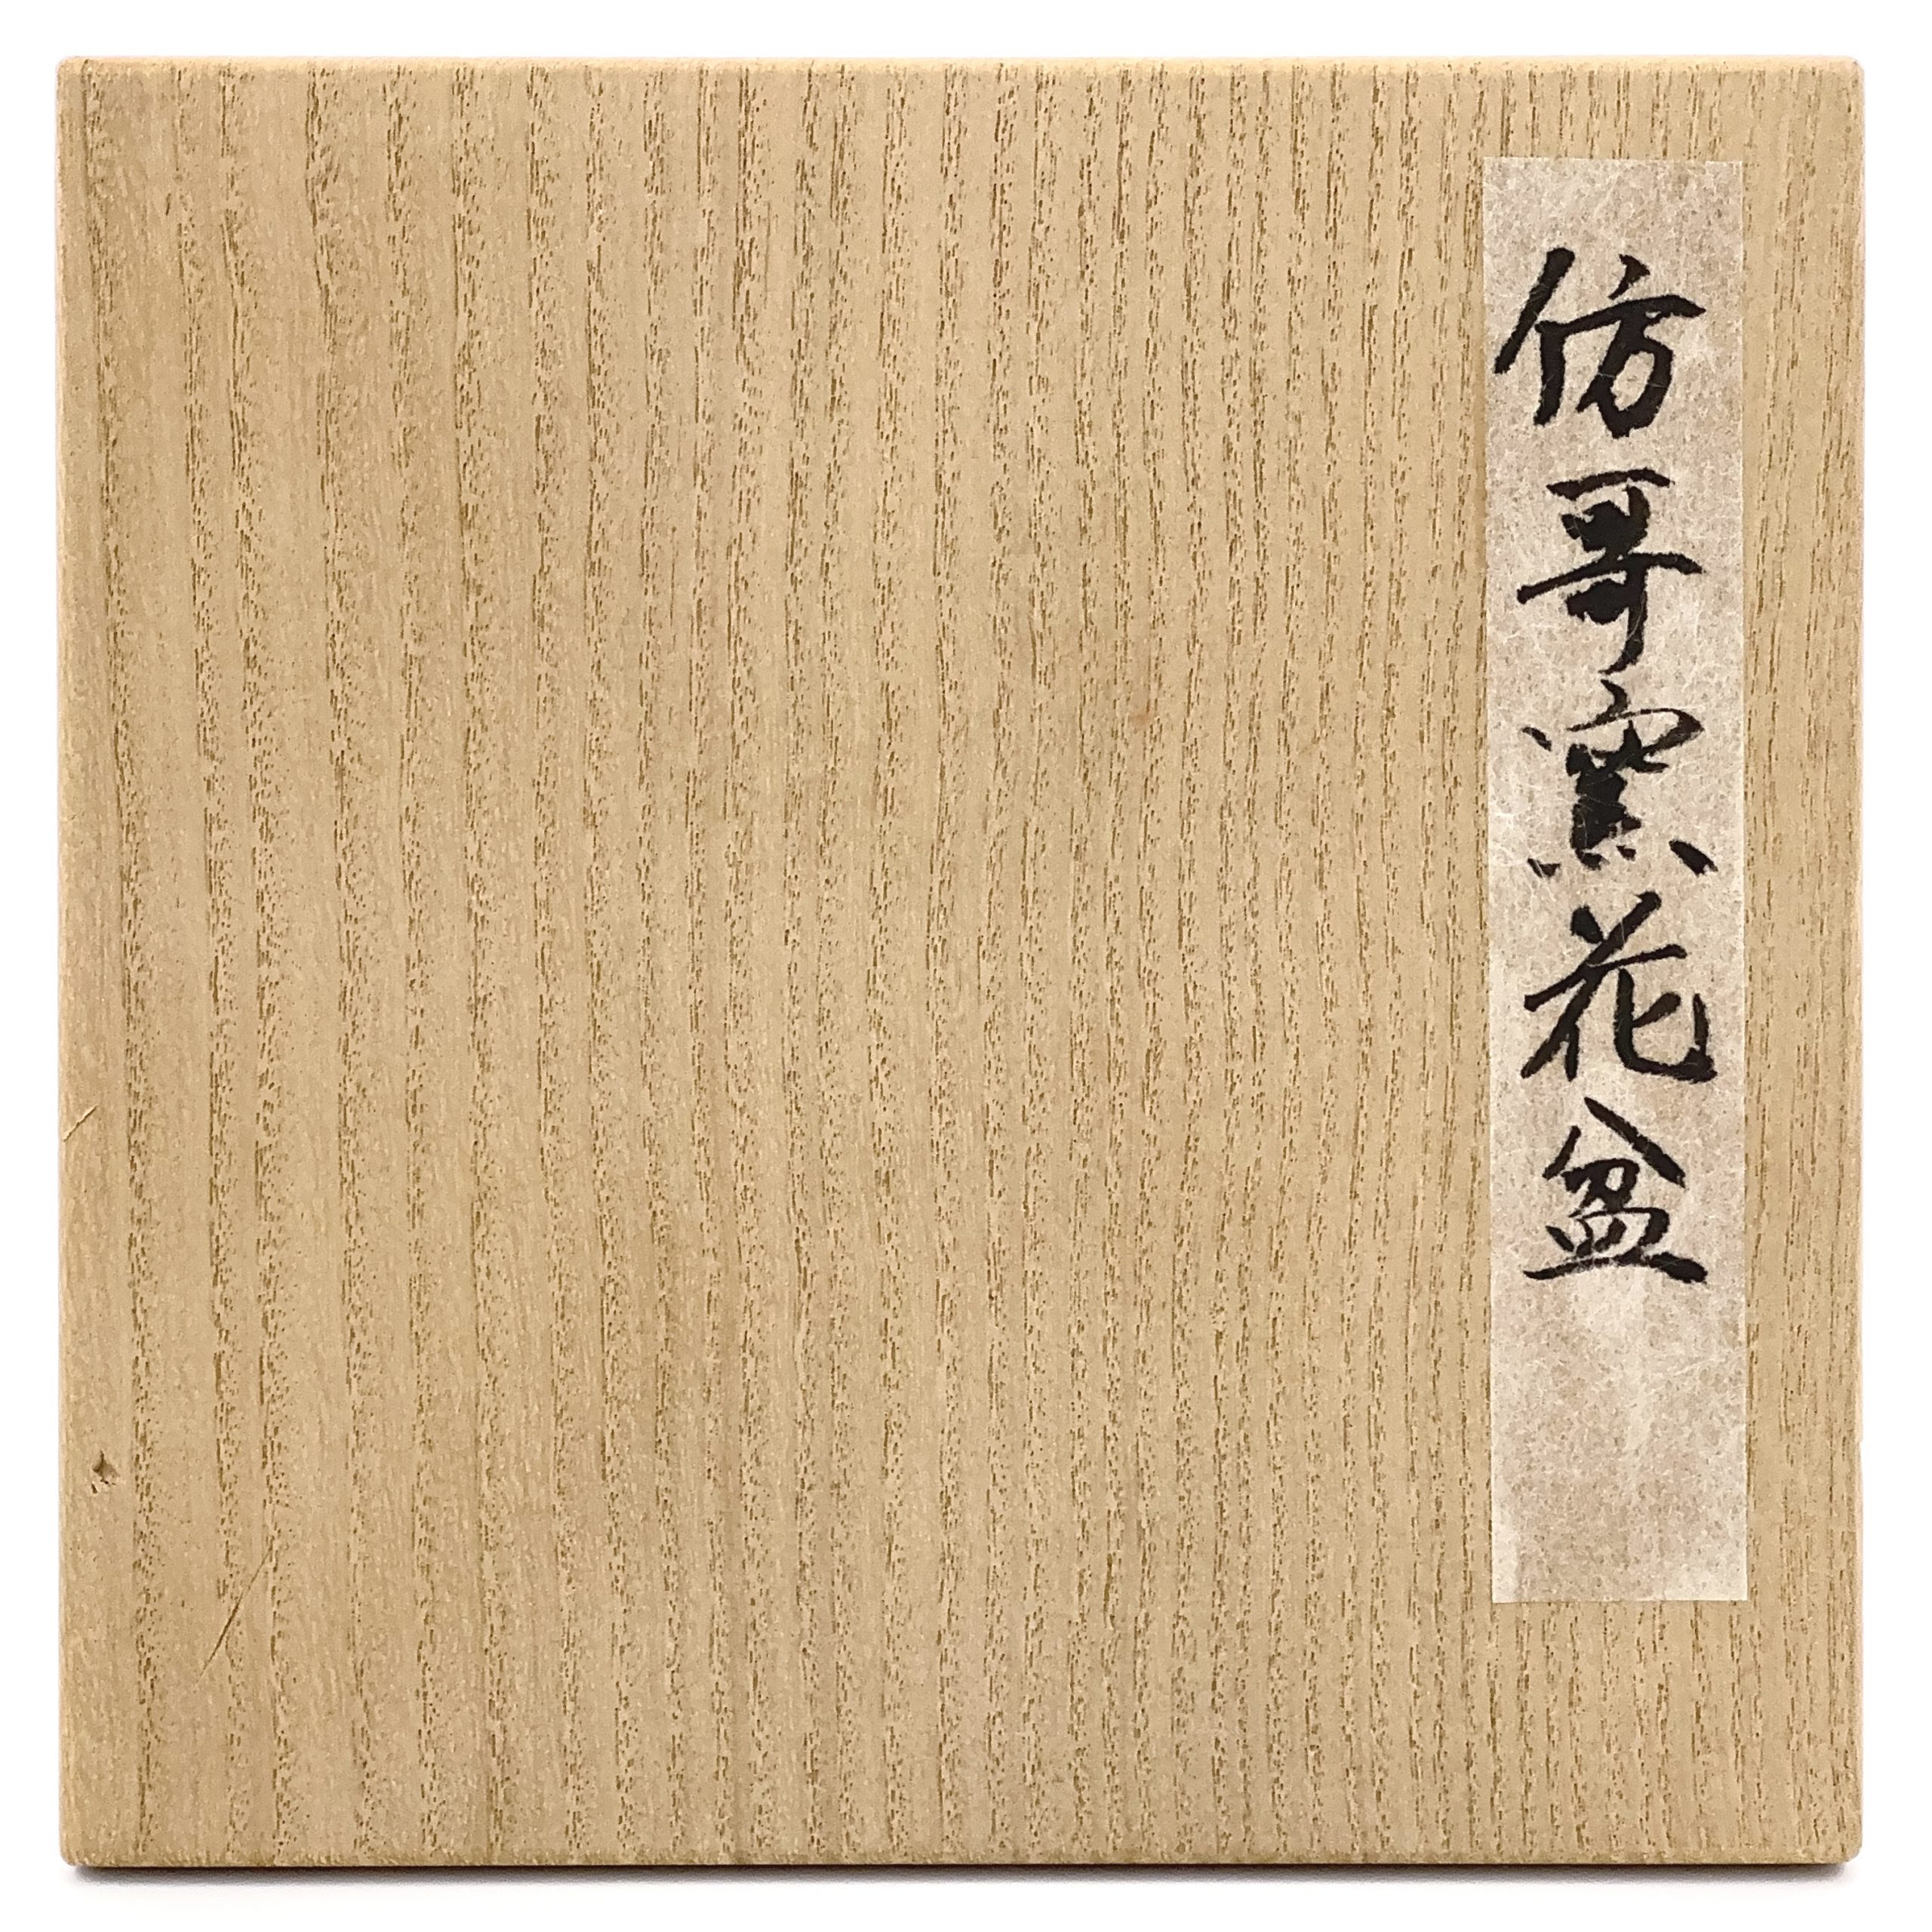 仿哥窯花盆